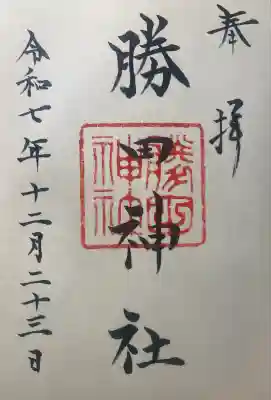 奉拝
勝田神社
令和七年十二月二十三日